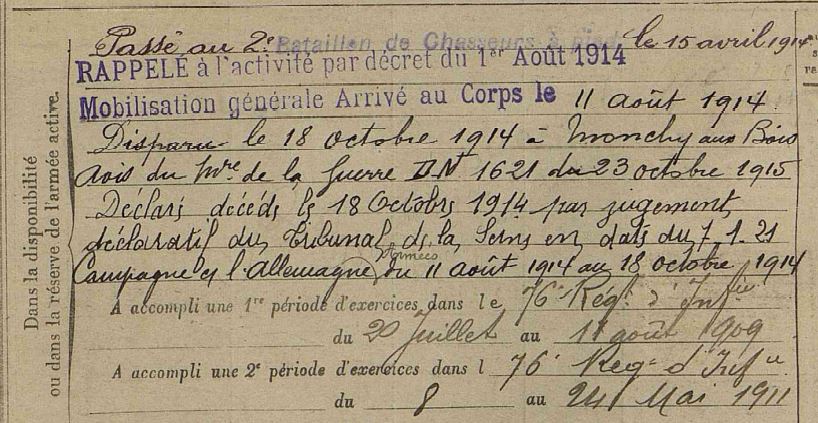 Passé au 2e Bataillon de Chasseurs à pied le 15 avril 1914
RAPPELÉ à l'activité par décret du 1er Août 1914
Mobilisation générale Arrivé au Corps le 11 août 1914
Disparu le 18 octobre 1914 à Monchy aux Bois
Avis du Mre de la Guerre DN 1621 du 23 octobre 1915
Déclaré décédé le 18 Octobre 1914 par jugement
déclaratif du Tribunal de la Seine en date du 7.1.21
Armées
Campagne cs l'Allemagne du 11 août 1914 au 18 octobre 1914
A accompli une 1re période d'exercices dans le 76e Régt d'Infie
du 20 juillet au 11 août 1909
A accompli une 2e période d'exercices dans l 76e Régt d'Infie
du 8 au 24 Mai 1911
Dans la disponibilité
ou dans la réserve de l'armée active.